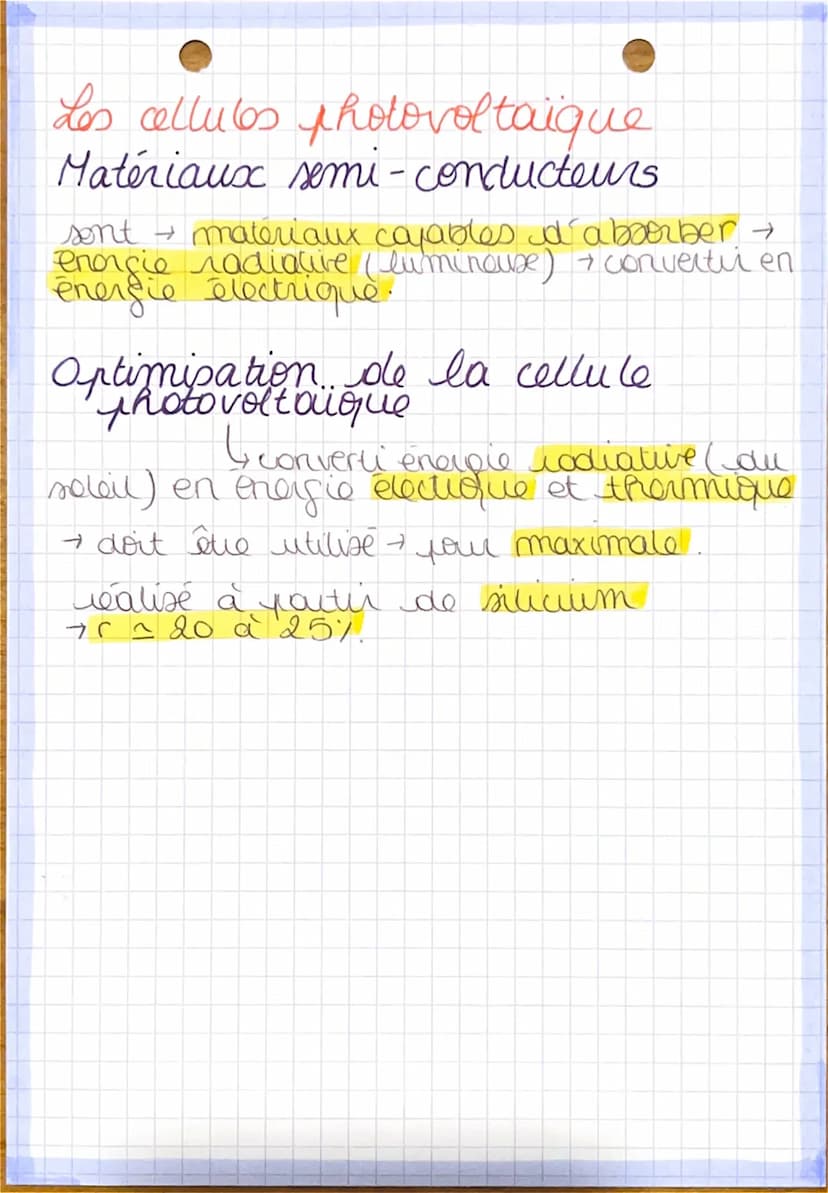 Les cellules photovoltaïque
Matériaux semi-conducteurs
sont → matériaux capables d'absorber →
énergie radiative (lumineuse) → convertir en
énergie électrique.
Optimisation de la cellule
photovoltaïque
↳ converti énergie radiative (du
soleil) en énergie électrique et thermique
→ doit être utilisé → pour maximale.
réalisé à partir de silicium
→ r ≃ 20 à 25%.